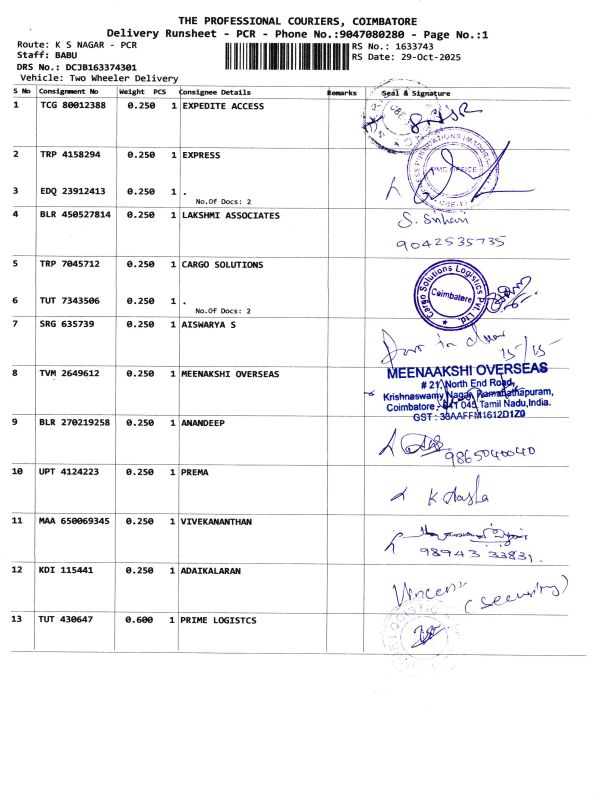 THE PROFESSIONAL COURIERS, COIMBATORE
Delivery Runsheet - PCR - Phone No.:9047080280 - Page No.:1
Route: K S NAGAR - PCR
Staff: BABU
DRS No.: DCJB163374301
Vehicle: Two Wheeler Delivery
RS No.: 1633743
RS Date: 29-Oct-2025
S No Consignment No Weight PCS Consignee Details Remarks Seal & Signature
1 TCG 80012388 0.250 1 EXPEDITE ACCESS
2 TRP 4158294 0.250 1 EXPRESS
3 EDQ 23912413 0.250 1 .
No.Of Docs: 2
4 BLR 450527814 0.250 1 LAKSHMI ASSOCIATES
9042535735
5 TRP 7045712 0.250 1 CARGO SOLUTIONS
Cargo Solutions Logistics Pvt. Ltd.
Coimbatore
6 TUT 7343506 0.250 1 .
No.Of Docs: 2
7 SRG 635739 0.250 1 AISWARYA S
15/15
8 TVM 2649612 0.250 1 MEENAKSHI OVERSEAS
MEENAAKSHI OVERSEAS
# 21, North End Road,
Krishnaswamy Nagar, Ramanathapuram,
Coimbatore - 641 045, Tamil Nadu, India.
GST : 33AAFFM1612D1Z0
9 BLR 270219258 0.250 1 ANANDEEP
9865040040
10 UPT 4124223 0.250 1 PREMA
11 MAA 650069345 0.250 1 VIVEKANANTHAN
98943 33831.
12 KDI 115441 0.250 1 ADAIKALARAN
(Security)
13 TUT 430647 0.600 1 PRIME LOGISTCS